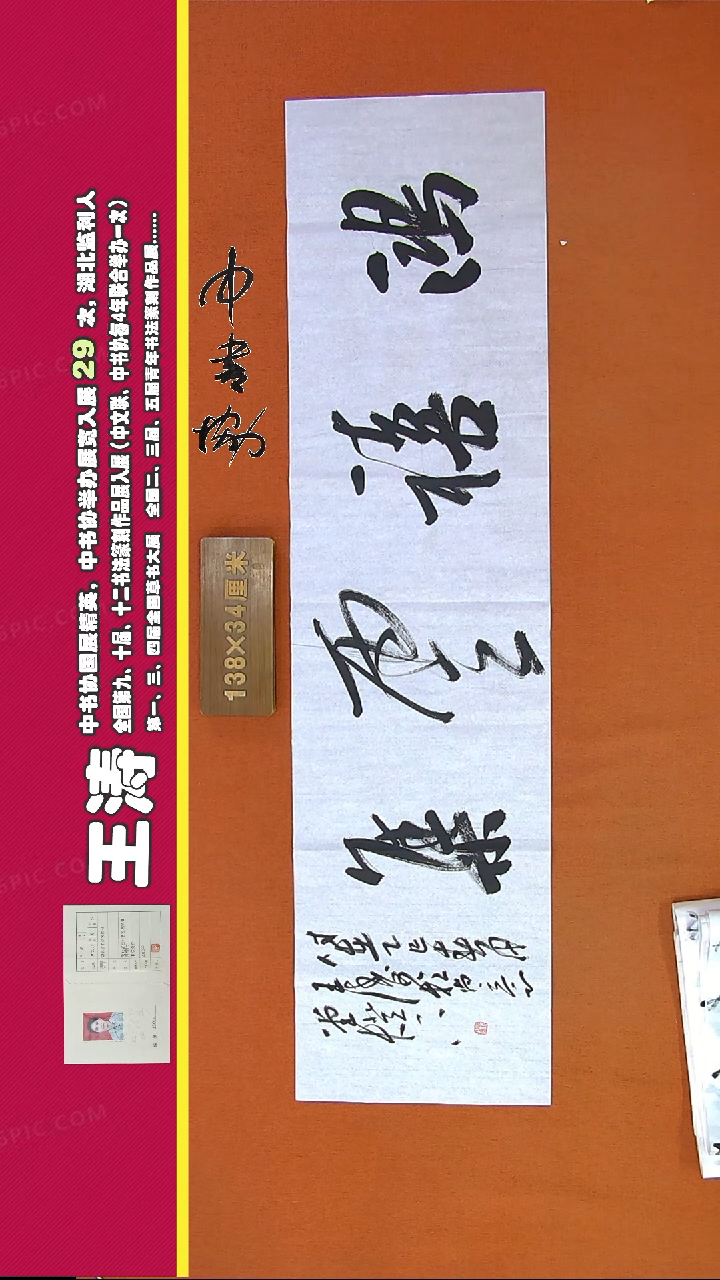 王涛
中书协国展精英，中书协举办展览入展29次，湖北监利人
全国第九、十届、十二书法篆刻作品展入展（中文联、中书协每4年联合举办一次）
第一、三、四届全国草书大展 全国二、三届、五届青年书法篆刻作品展……
中书协
138×34厘米
鸿禧雲集